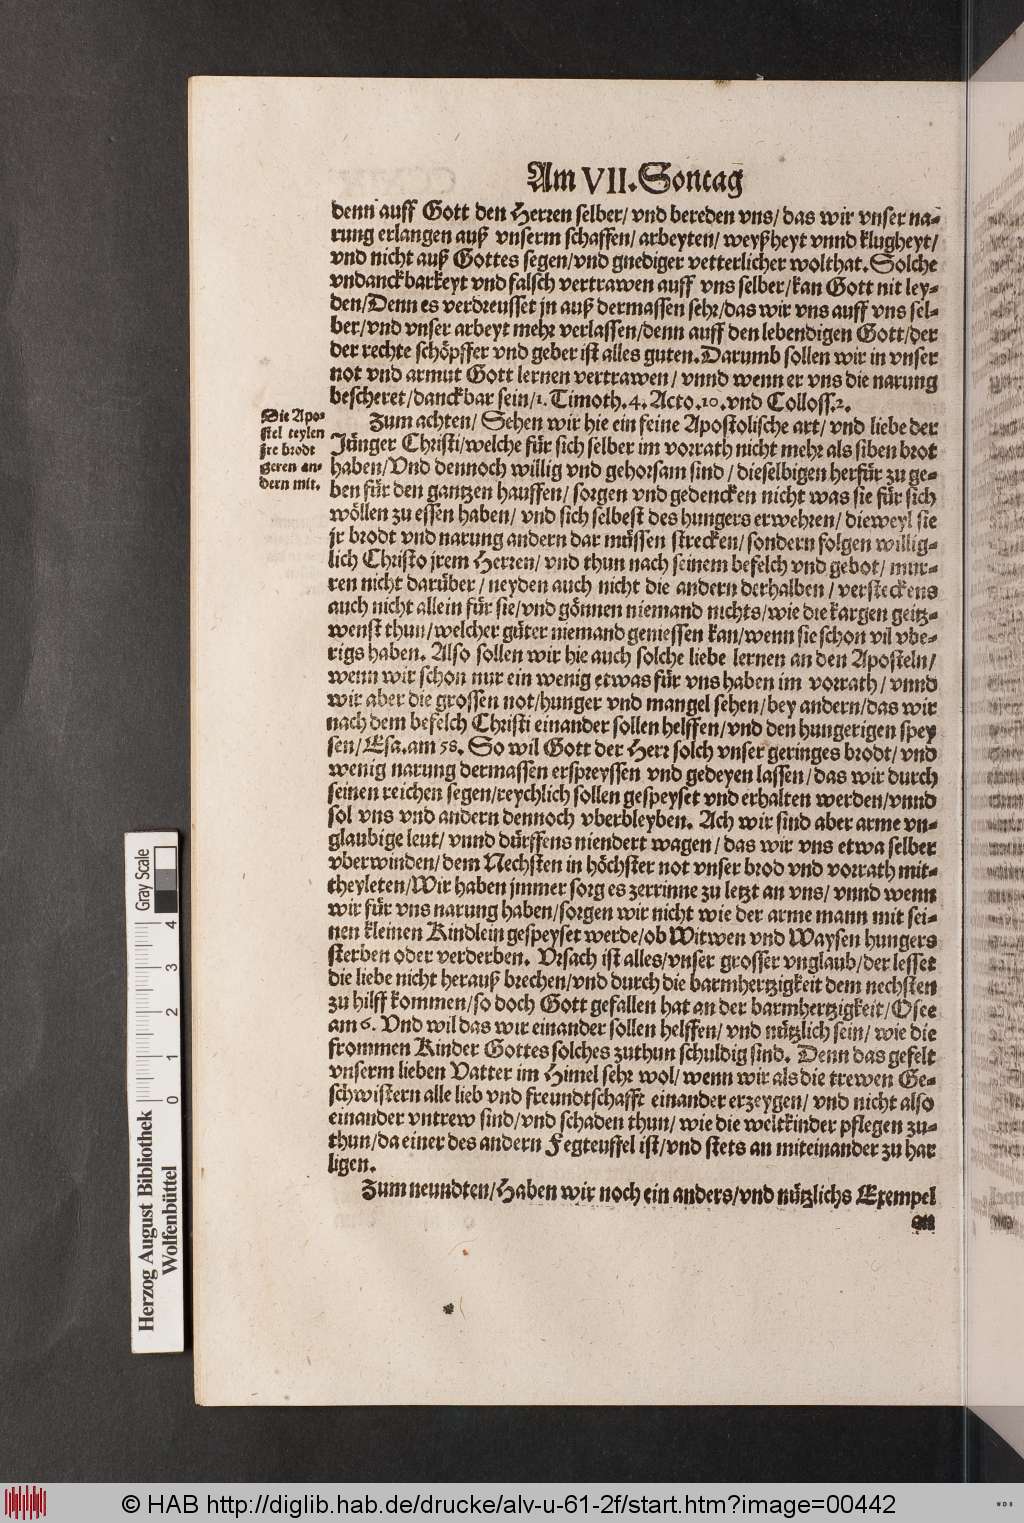 Am VII. Sontag
denn auff Gott den Herren selber/ vnd bereden vns/ das wir vnser na-
rung erlangen auß vnserm schaffen/ arbeyten/ weyßheyt vnnd klugheyt/
vnd nicht auß Gottes segen/ vnd gnediger vetterlicher wolthat. Solche
vndanckbarkeyt vnd falsch vertrawen auff vns selber/ kan Gott nit ley-
den/ Denn es verdreusset jn auß dermassen sehr/ das wir vns auff vns sel-
ber/ vnd vnser arbeyt mehr verlassen/ denn auff den lebendigen Gott/ der
der rechte schöpffer vnd geber ist alles guten. Darumb sollen wir in vnser
not vnd armut Gott lernen vertrawen/ vnnd wenn er vns die narung
bescheret/ danckbar sein/ 1. Timoth. 4. Acto. 10. vnd Colloss. 2.
Die Apo-
stel teylen
jre brodt
geren an-
dern mit.
Zum achten/ Sehen wir hie ein feine Apostolische art/ vnd liebe der
Jünger Christi/ welche für sich selber im vorrath nicht mehr als siben brot
haben/ Vnd dennoch willig vnd gehorsam sind/ dieselbigen herfür zu ge-
ben für den gantzen hauffen/ sorgen vnd gedencken nicht was sie für sich
wöllen zu essen haben/ vnd sich selbest des hungers erwehren/ dieweyl sie
jr brodt vnd narung andern dar müssen strecken/ sondern folgen willig-
lich Christo jrem Herren/ vnd thun nach seinem befelch vnd gebot/ mur-
ren nicht darüber/ neyden auch nicht die andern derhalben/ versteckens
auch nicht allein für sie/ vnd gönnen niemand nichts/ wie die kargen geitz-
wenst thun/ welcher güter niemand geniessen kan/ wenn sie schon vil vbe-
rigs haben. Also sollen wir hie auch solche liebe lernen an den Aposteln/
wenn wir schon nur ein wenig etwas für vns haben im vorrath/ vnnd
wir aber die grossen not/ hunger vnd mangel sehen/ bey andern/ das wir
nach dem befelch Christi einander sollen helffen/ vnd den hungerigen spey
sen/ Esa. am 58. So wil Gott der Herr solch vnser geringes brodt/ vnd
wenig narung dermassen erspreyssen vnd gedeyen lassen/ das wir durch
seinen reichen segen/ reychlich sollen gespeyset vnd erhalten werden/ vnnd
sol vns vnd andern dennoch vberbleyben. Ach wir sind aber arme vn-
glaubige leut/ vnnd dürffens niendert wagen/ das wir vns etwa selber
vberwinden/ dem Nechsten in höchster not vnser brod vnd vorrath mit-
theyleten/ Wir haben jmmer sorg es zerrinne zu letzt an vns/ vnnd wenn
wir für vns narung haben/ sorgen wir nicht wie der arme mann mit sei-
nen kleinen Kindlein gespeyset werde/ ob Witwen vnd Waysen hungers
sterben oder verderben. Vrsach ist alles/ vnser grosser vnglaub/ der lesset
die liebe nicht herauß brechen/ vnd durch die barmhertzigkeit dem nechsten
zu hilff kommen/ so doch Gott gefallen hat an der barmhertzigkeit/ Osee
am 6. Vnd wil das wir einander sollen helffen/ vnd nützlich sein/ wie die
frommen Kinder Gottes solches zuthun schuldig sind. Denn das gefelt
vnserm lieben Vatter im Himel sehr wol/ wenn wir als die trewen Ge-
schwistern alle lieb vnd freundtschafft einander erzeygen/ vnd nicht also
einander vntrew sind/ vnd schaden thun/ wie die weltkinder pflegen zu-
thun/ da einer des andern Fegteuffel ist/ vnd stets an miteinander zu har
ligen.
Zum neundten/ Haben wir noch ein anders/ vnd nützlichs Exempel
an
Herzog August Bibliothek
Wolfenbüttel
0 1 2 3 4
Gray Scale
© HAB http://diglib.hab.de/drucke/alv-u-61-2f/start.htm?image=00442